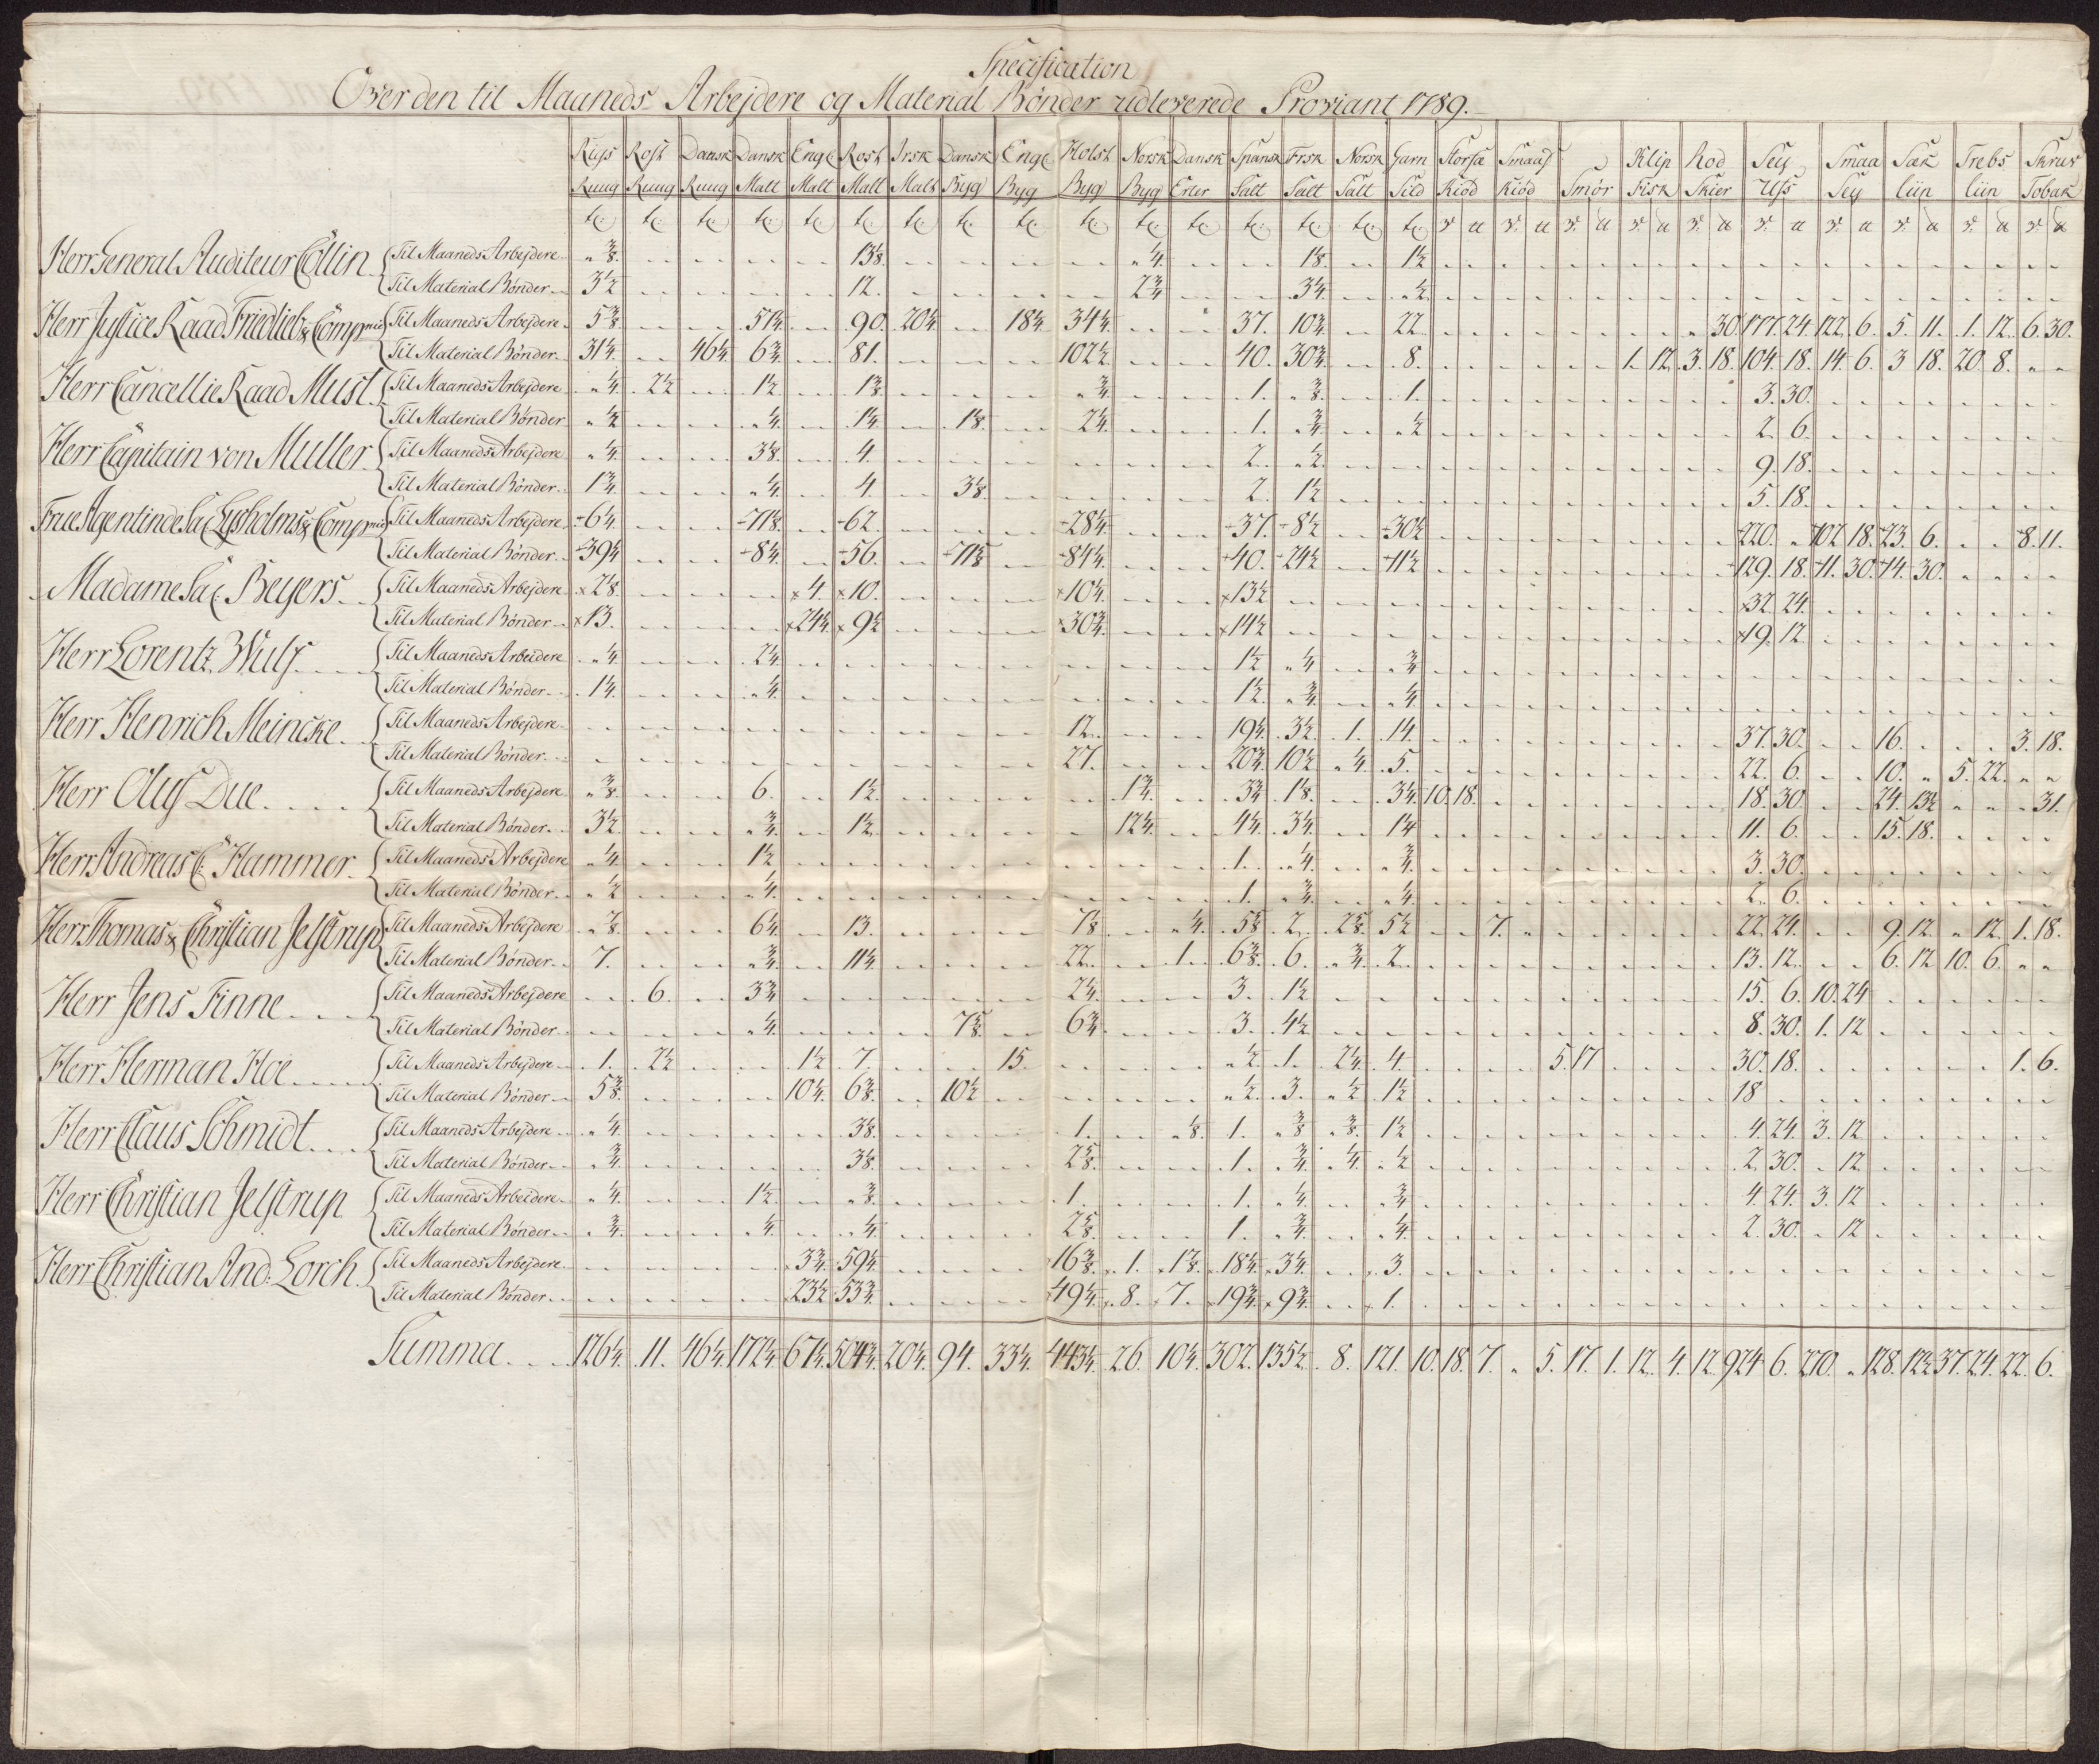 Specification
Over den til Maaneds Arbejdere og Material Bønder udleverede Proviant 1789.
Rigs Rost Dansk Dansk Engl Rost Irsk Dansk Engl Holst Norsk Dansk Spansk Frsk Norsk Garn Storfæ Smaaf Klip Rod Sey Smaa Sæk Trebs Skrus
Ruug Ruug Ruug Malt Malt Malt Malt Byg Byg Byg Byg Erter Salt Salt Salt Sild Kiød Kiød Smør Fisk Skier Ufs Sey liin liin Tobak
Herr General Auditeur Collin Til Maaneds Arbejdere " 3/8. 13 1/8. " 1/4. 1 1/8. 1 1/2
Til Material Bønder 3 1/2 12. 2 3/4 3 1/4. " 1/2
Herr Justice Raad Friedlieb & Comp Til Maaneds Arbejdere 5 3/8. 51 1/4. 90. 20 1/4. 18 1/4. 34 1/4. 37. 10 3/4. 22 " 30. 177. 24. 122. 6. 5. 11. 1. 12. 6. 30.
Til Material Bønder 31 1/4. 46 1/4. 6 3/4. 81. 102 1/2. 40. 30 3/4. 8. 1. 12. 3. 18. 104. 18. 14. 6. 3 18. 20. 8. " "
Herr Cancellie Raad Must. Til Maaneds Arbejdere " 1/4. 2 1/2 1 1/2. 1 3/8. " 3/4. 1. " 3/8. 1. 3. 30.
Til Material Bønder " 1/2 " 1/4. 1 1/4. 1 1/8. 2 1/4. 1. " 3/4. " 1/2 2. 6.
Herr Capitain von Muller Til Maaneds Arbejdere " 1/4. 3 1/8. 4. 2. " 1/2. 9. 18.
Til Material Bønder 1 3/4. " 1/4. 4. 3 1/8. 2. 1 1/2 5. 18.
Frue Agentinde Sal Lysholms & Comp Til Maaneds Arbejdere 6 1/4. 71 1/8. 62. 28 1/4. 37. 8 1/2 30 1/2 220. " 102. 18. 23. 6. 8. 11.
Til Material Bønder 39 1/4 8 1/4. 56. 71 5/8 84 1/4. 40. 24 1/2 11 1/2 129. 18. 11. 30. 14. 30.
Madame Sal Beyers Til Maaneds Arbejdere × 2 1/8. × 4. × 10. × 10 1/4. × 13 1/2 × 32. 24.
Til Material Bønder × 13. × 24 1/4. × 9 1/2 × 30 3/4. × 14 1/2 × 19. 12.
Herr Lorentz Wulf Til Maaneds Arbeidere " 1/4. 2 1/4. 1 1/2 " 1/4. " 3/4
Til Material Bønder 1 1/4. " 1/4. 1 1/2. " 3/4. " 1/4.
Herr Henrich Meincke Til Maaneds Arbejdere 12. 19 1/4. 3 1/2. 1. 14. 37. 30. 16. 3. 18.
Til Material Bønder 27. 20 3/4. 10 1/2 " 1/4. 5. 22. 6. 10. " 5. 22. " "
Herr Oluf Due Til Maaneds Arbejdere " 3/8. 6. 1 1/2. 1 3/4. 3 3/4 1 1/8. 3 1/4. 10. 18. 18. 30. 24. 13 1/2 " " " 31.
Til Material Bønder 3 1/2. " 3/4. 1 1/2. 12 1/4. 4 1/4. 3 1/4. 1 1/4 11. 6. 15. 18.
Herr Andreas C: Hammer Til Maaneds Arbejdere " 1/4. 1 1/2 1. " 1/4. " 3/4. 3. 30.
Til Material Bønder " 1/2 " 1/4. 1. " 3/4. " 1/4. 2. 6.
Herr Thomas & Christian Jelstrup Til Maaneds Arbejdere " 7/8. 6 1/4 13. 7 1/8. " 1/4. 5 5/8. 2. 2 5/8. 5 1/2 7. " 22. 24. 9. 12 " 12. 1. 18.
Til Material Bønder 7. " 3/4. 11 1/4. 22. 1. 6 3/8. 6. " 3/4. 2. 13. 12. 6. 12 10. 6. " "
Herr Jens Finne Til Maaneds Arbejdere 6. 3 3/4 2 1/4. 3. 1 1/2 15. 6. 10. 24
Til Material Bønder " 1/4. 7 5/8. 6 3/4 3. 4 1/2 8. 30. 1. 12
Herr Herman Hoe Til Maaneds Arbejdere 1. 2 1/2 1 1/2 7. 15. " 1/2 1. 2 1/4. 4. 5. 17 30. 18. 1. 6.
Til Material Bønder 5 3/8. 10 1/4. 6 3/8. 10 1/2 " 1/2. 3. " 1/2 1 1/2 18
Herr Claus Schmidt Til Maaneds Arbejdere " 1/4. 3 1/8. 1. " 1/8. 1. " 3/8 " 3/8. 1 1/2 4. 24. 3. 12
Til Material Bønder " 3/4. 3 1/8. 2 5/8. 1. " 3/4. " 1/4. " 1/2 2. 30. " 12.
Herr Christian Jelstrup Til Maaneds Arbeidere " 1/4. 1 1/2. " 3/8. 1. 1. " 1/4. " 3/4 4. 24. 3. 12
Til Material Bønder " 3/4. " 1/4. " 1/4. 2 5/8. 1. " 3/4. " 1/4. 2. 30. " 12
Herr Christian And: Lorch. Til Maaneds Arbejdere 3 3/4. 59 1/4. 16 3/8. 1. 1 7/8. 18 1/4. 3 1/4. 3.
Til Material Bønder 23 1/2 53 3/4. 49 1/4. 8. 7. 19 3/4. 9 3/4. 1.
Summa 126 1/4. 11. 46 1/4. 172 1/4. 67 1/4. 504 3/4. 20 1/4. 94. 33 1/4. 443 1/4. 26. 10 1/4. 302. 135 1/2. 8. 121. 10. 18. 7. " 5. 17. 1. 12. 4. 12. 924 6. 270. " 128. 12 1/2 37. 24. 22. 6.